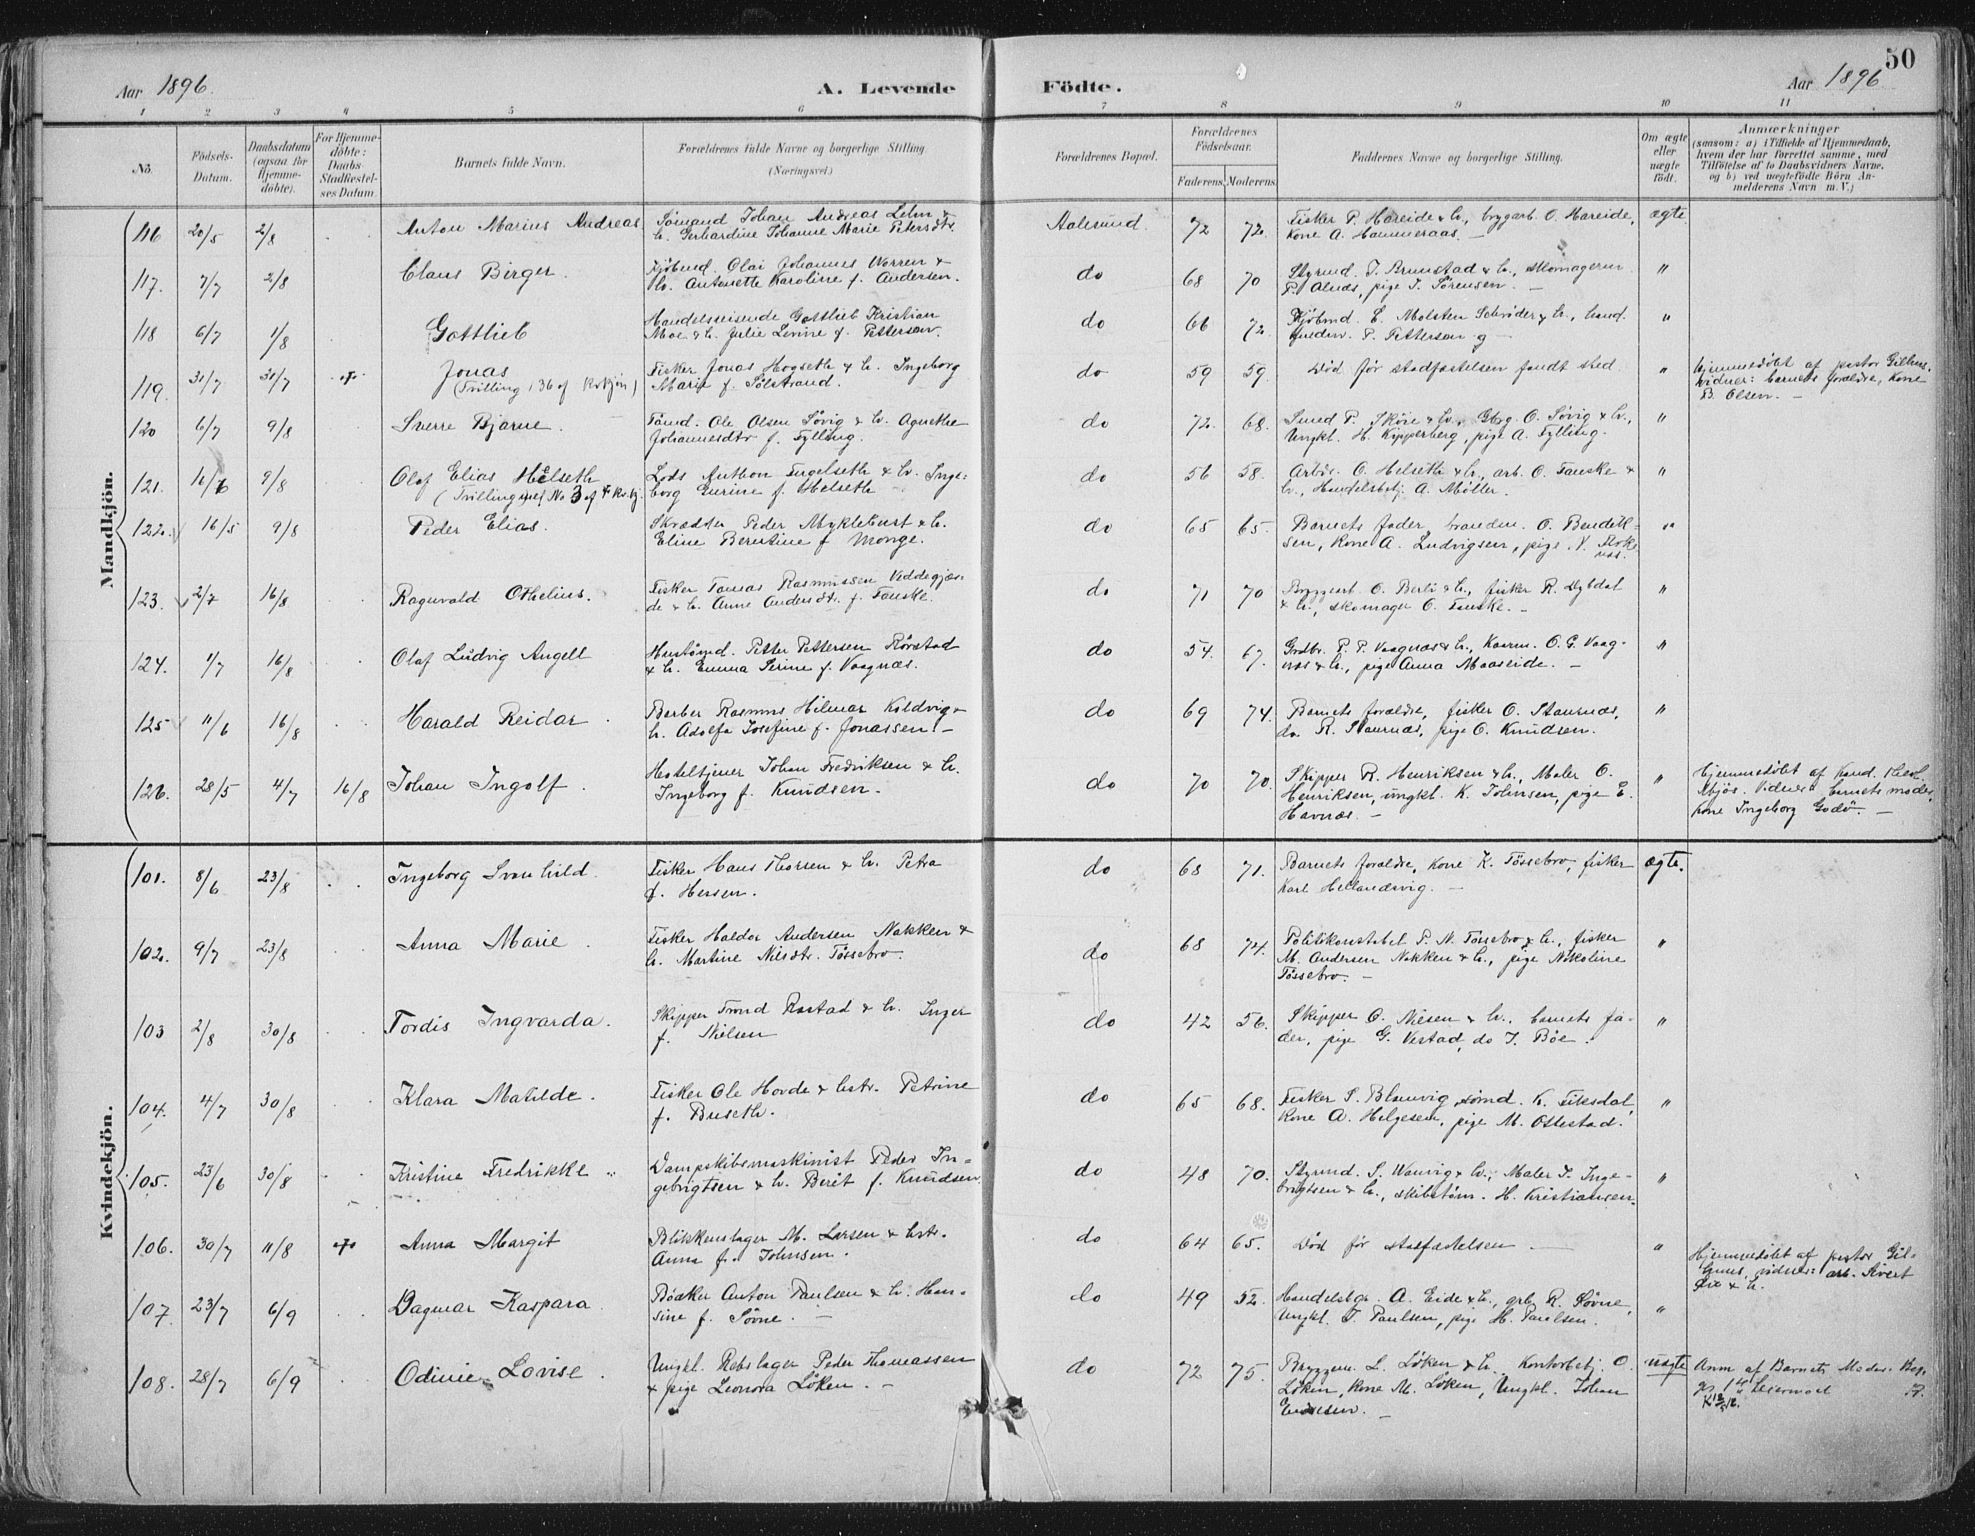 50
Aar 1896.
A. Levende Födte.
Aar 1896
1 2 3 4 5 6 7 8 9 10 11
No.
Födsels-Datum.
Daabsdatum (ogsaa for Hjemme-döbte).
For Hjemme-döbte: Daabs-Stadfæstel-ses Datum.
Barnets fulde Navn.
Forældrenes fulde Navne og borgerlige Stilling. (Næringsvei.)
Forældrenes Bopæl.
Forældrenes Födselsaar.
Faderens. Moderens.
Faddernes Navne og borgerlige Stilling.
Om ægte eller uægte födt.
Anmærkninger
(saasom: a) i Tilfælde af Hjemmedaab,
hvem der har forrettet samme, med
Tilföielse af to Daabsvidners Navne.
og b) ved uægtefödte Börn An-
melderens Navn m. V.)
Mandkjön.
116 20/5 2/8 Anton Marius Andreas
Sömand Johan Andreas Lehn &
h. Gerhardine Johanne Marie Petersdtr.
Aalesund. 72 72.
Fisker P. Hareide & h., brygarb. O. Hareide,
Kone A. Hammeraas. —
ægte
117. 7/7 2/8 Claus Birger.
Kjöbmd. Olai Johannes Worren &
h. Antonette Karoline f. Andersen.
do 68 70
Styrmd. J. Brunstad & h., skomagersv.
P. Alnæs, pige J. Sörensen. —
"
118 6/7 1/8 Gottlieb
Handelsreisende Gottlieb Kristian
Moe & h. Julie Levine f. Pettersen.
do 66 72.
Kjöbmd. L. Molsten Schröder & h., hand.
P. Pettersen
"
119. 31/7 31/7 Jonas
(Trilling
Fisker Jonas Hogseth & h. Ingeborg
Marie f. Sölstrand.
do 59 59.
Död för stadfæstelsen fandt sted.
"
hjemmedöbt af pastor Gilhus,
vidner: barnets forældre, Kone
B. Olsen. —
120 6/7 9/8 Sverre Bjarne.
Tömd. Ole Olsen Sövig & h. Agnethe
Johannesdtr f. Fylling.
do 72. 68.
Smed P. Sköie & h., Gbrg. O. Sövig & h.,
Ungkl. H. Kipperberg, pige A. Fylling.
"
121. 9/8 Olaf Elias Helseth
(Trilling
Lods Anthon Engelseth & h. Inge-
borg Gurine f. Helseth
do 56 58.
Arbdr. O. Helseth & h., arb. O. Fauske &
h., Handelsbetj. A. Möller.
"
122. 16/5 9/8 Peder Elias.
Skrædder Peder Myklebust & h.
Eline Berntine f Monge.
do 65 65.
Barnets fader, brandm. O. Bendik-
sen, Kone A. Ludvigsen, pige V. Floke
næs.
"
123. 2/7 16/8 Ragnvald Othelius.
Fisker Tomas Rasmussen Veddegjær-
de & h. Anne Andersdtr. f. Fauske.
do 71 70
Bryggearb. O. Berli & h., fisker R. Dybdal
& h., skomager O. Fauske. —
"
124. 1/7 16/8 Olaf Ludvig Angell
Hustömd. Petter Pettersen Rörstad
& h. Emma Serine f. Vaagnæs.
do 54. 67.
Grdbr. P. P. Vaagnæs & h., Kaarm. O. G. Vaag-
næs & h., pige Anna Maaseide. —
"
125 11/6 16/8 Harald Reidar.
Barber Rasmus Hilmar Koldvig &
h. Adolfa Josefine f. Jonassen. —
do 69 74.
Barnets forældre, fisker O. Staurnæs,
do. R. Staurnæs, pige O. Knudsen.
"
126. 28/5 4/7 16/8 Johan Ingolf.
Hoteltjener Johan Fredriksen & h.
Ingeborg f. Knudsen.
do 70 70.
Skipper R. Henriksen & h., Maler O.
Henriksen, ungkl. K. Johnsen, pige E.
Havnæs. —
"
Hjemmedöbt af Kand. theol.
Vidner: barnets moder,
Kone Ingeborg Godö. —
Kvindekjön.
101. 8/6 23/8 Ingeborg Svanhild.
Fisker Hans Thorsen & h. Petra
f. Hessen.
do 68 71.
Barnets forældre, Kone K. Tössebro, fisker
Karl Hellandsvig. —
ægte.
102. 9/7 23/8 Anna Marie.
Fisker Haldor Andersen Nakken &
h. Martine Nilsdtr. Tössebro.
do 68 74.
Politikonstabel P. N. Tössebro & h., fisker
M. Andersen Nakken & h., pige Nikoline
Tössebro. —
"
103 2/8 30/8 Tordis Ingvarda.
Skipper Trond Rastad & h. Inger
f. Nielsen
do 42 56.
Skipper O. Nilsen & h., barnets fa-
der, pige G. Vestad, do J. Böe.
"
104. 4/7 30/8 Klara Matilde.
Fisker Ole Hovde & hstr. Petrine
f. Buseth.
do 65 68.
Fisker S. Blomvig, sömd. K. Fiksdal,
Kone A. Helgesen, pige M. Ottestad.
"
105. 23/6 30/8 Kristine Fredrikke
Dampskibsmaskinist Peder In-
gebrigtsen & h. Berit f. Knudsen
do 48 70.
Styrmd. S. Wanvig & h.; Maler J. Inge-
brigtsen & h., skibstöm. H. Kristiansen.
"
106. 30/7 11/8 Anna Margit
Blikkenslager M. Larsen & hstr.
Anna f. Johnsen.
do 64 65.
Död för stadfæstelsen —
"
Hjemmedöbt af pastor Gil-
hus, vidner: arb. Sivert
& h.
107. 23/7 6/9 Dagmar Kaspara.
Bödker Anton Paulsen & h. Han-
sine f. Sövne. —
do 49 52.
Handelsbgr. A. Eide & h., grb. R. Sövne,
Ungkl. T. Paulsen, pige H. Paulsen.
"
108. 28/7 6/9 Odinie Lovise.
Ungkl. Rebslager Peder Thomassen
& pige Leonora Löken. —
do 72 75.
Bryggem. L. Löken & h. Kontorbetj. O.
Löken, Kone M. Löken, Ungkl. Johan
—
uægte
Anm af Barnets Moder.
Leiermaal